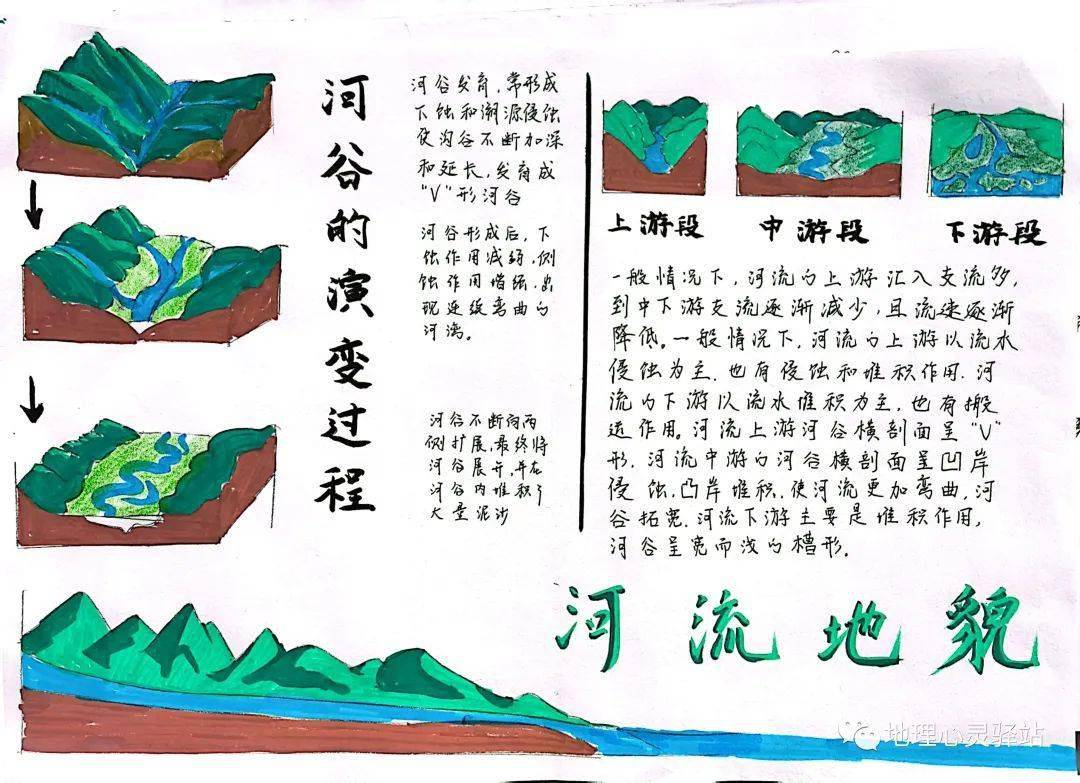 河谷的演变过程
河谷发育，常形成
下蚀和溯源侵蚀
使沟谷不断加深
和延长，发育成
“V”形河谷
河谷形成后，下
蚀作用减弱，侧
蚀作用增强，出
现连续弯曲的
河湾。
河谷不断向两
侧扩展，最终将
河谷展开，并在
河谷内堆积了
大量泥沙
上游段
中游段
下游段
一般情况下，河流的上游汇入支流多，
到中下游支流逐渐减少，且流速逐渐
降低。一般情况下，河流的上游以流水
侵蚀为主，也有侵蚀和堆积作用．河
流的下游以流水堆积为主，也有搬
运作用。河流上游河谷横剖面呈“V”
形，河流中游的河谷横剖面呈凹岸
侵蚀，凸岸堆积，使河流更加弯曲，河
谷拓宽，河流下游主要是堆积作用，
河谷呈宽而浅的槽形。
河流地貌
地理心灵驿站